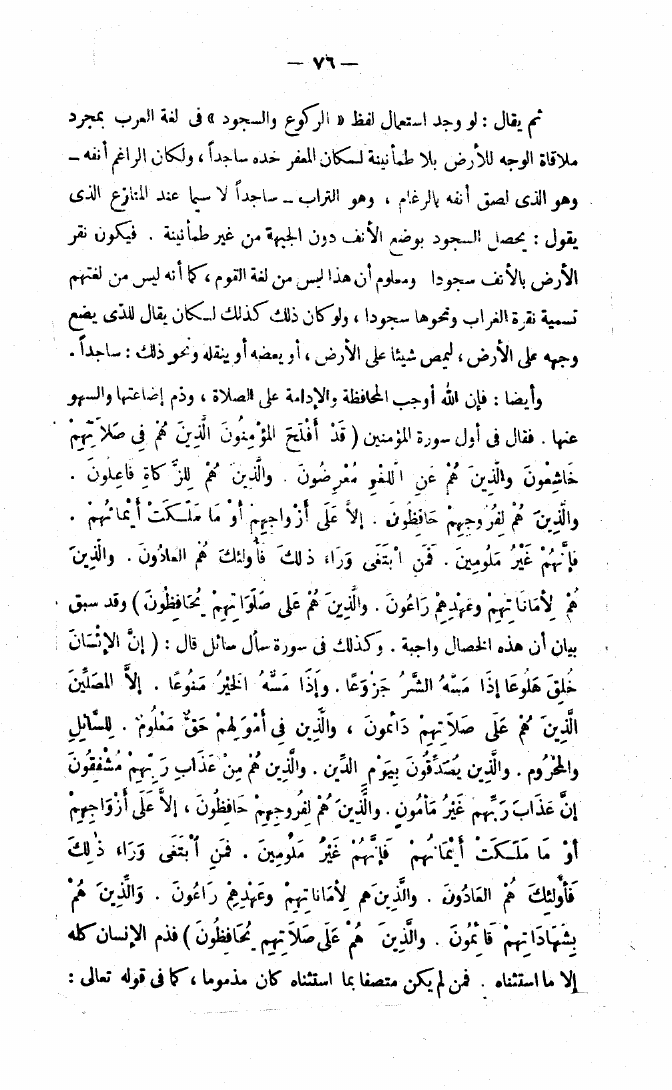 — ٧٦ —
ثم يقال : لو وجد استعمال لفظ « الركوع والسجود » فى لغة العرب بمجرد
ملاقاة الوجه للأرض بلا طمأنينة لكان المعفر خده ساجداً ، ولكان الراغم أنفه ـ
وهو الذى لصق أنفه بالرغام ، وهو التراب ـ ساجداً لا سيما عند المنازع الذى
يقول : يحصل السجود بوضع الأنف دون الجبهة من غير طمأنينة . فيكون نقر
الأرض بالأنف سجودا ومعلوم أن هذا ليس من لغة القوم ، كما أنه ليس من لغتهم
تسمية نقرة الغراب ونحوها سجودا ، ولو كان ذلك كذلك لكان يقال للذى يضع
وجهه على الأرض ، ليمص شيئا على الأرض ، أو يعضه أو ينقله ونحو ذلك : ساجداً .
وأيضا : فإن الله أوجب المحافظة والإدامة على الصلاة ، وذم إضاعتها والسهو
عنها . فقال فى أول سورة المؤمنين ( قَدْ أَفْلَحَ المُؤْمِنُونَ الَّذِينَ هُمْ فِى صَلاَتِهِمْ
خَاشِعُونَ وَالَّذِينَ هُمْ عَنِ اللَّغْوِ مُعْرِضُونَ . وَالَّذِينَ هُمْ لِلزَّكَاةِ فَاعِلُونَ .
وَالَّذِينَ هُمْ لِفُرُوجِهِمْ حَافِظُونَ . إلاَّ عَلَى أَزْوَاجِهِمْ أَوْ مَا مَلَكَتْ أَيْمَانُهُمْ .
فإِنَّهُمْ غَيْرُ مَلُومِينَ . فَمَنِ ابْتَغَى وَرَاءَ ذلِكَ فَأُولئِكَ هُمُ العَادُونَ . وَالَّذِينَ
هُمْ لِأَمَانَاتِهِمْ وَعَهْدِهِمْ رَاعُونَ . وَالَّذِينَ هُمْ عَلَى صَلَوَاتِهِمْ يُحَافِظُونَ ) وقد سبق
بيان أن هذه الخصال واجبة . وكذلك فى سورة سأل سائل قال : ( إِنَّ الإِنْسَانَ
خُلِقَ هَلُوعًا إذَا مَسَّهُ الشَّرُّ جَزُوعًا . وَإِذَا مَسَّهُ الخَيْرُ مَنُوعًا . إلاَّ المُصَلِّينَ
الَّذِينَ هُمْ عَلَى صَلاَتِهِمْ دَائمُونَ ، وَالَّذِينَ فِى أَمْوَلِهِمْ حَقٌّ مَعْلُومٌ . لِلسَّائِلِ
وَالمَحْرُومِ . وَالَّذِينَ يُصَدِّقُونَ بِيَوْمِ الدِّينِ . وَالَّذِينَ هُمْ مِنْ عَذَابِ رَبِّهِمْ مُشْفِقُونَ
إِنَّ عَذَابَ رَبِّهِمْ غَيْرُ مَأْمُونٍ . وَالَّذِينَ هُمْ لِفُرُوجِهِمْ حَافِظُونَ ، إلاَّ عَلَى أَزْوَاجِهِمْ
أوْ مَا مَلَكَتْ أَيْمَانُهُمْ فَإِنَّهُمْ غَيْرُ مَلُومِينَ . فَمَنِ ابْتَغَى وَرَاءَ ذٰلِكَ
فَأُولئِكَ هُمُ العَادُونَ . وَالَّذِينَ هم لِأَمَانَاتِهِمْ وَعَهْدِهِمْ رَاعُونَ . وَالَّذِينَ هُمْ
بِشَهَادَاتِهِمْ قَائمُونَ . وَالَّذِينَ هُمْ عَلَى صَلاَتِهِمْ يُحَافِظُونَ ) فذم الإنسان كله
إلا ما استثناه . فمن لم يكن متصفا بما استثناه كان مذموما ، كما فى قوله تعالى :